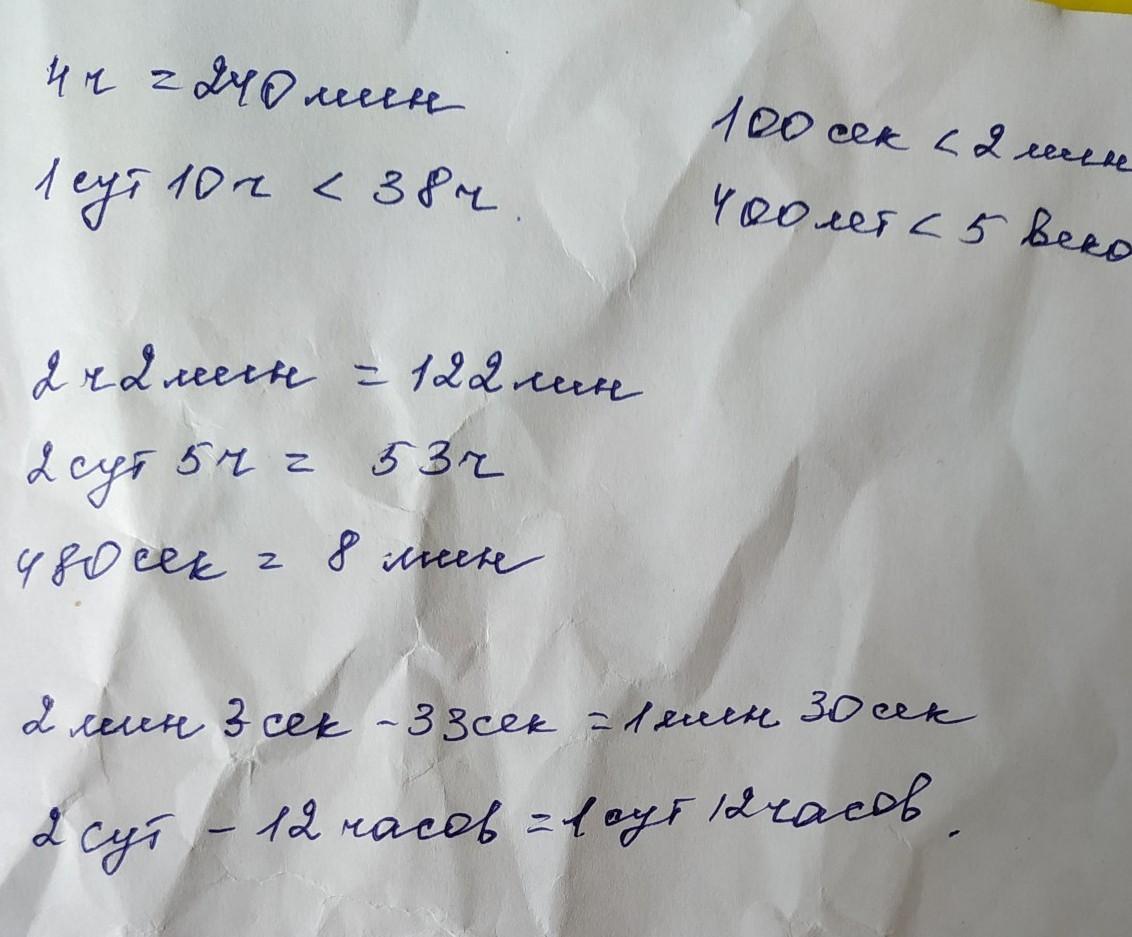 4ч = 240 мин
1 сут 10ч < 38ч.
100 сек < 2 мин
400 лет < 5 веко
2ч 2 мин = 122 мин
2 сут 5ч = 53ч
480 сек = 8 мин
2 мин 3 сек - 33 сек = 1 мин 30 сек
2 сут - 12 часов = 1 сут 12 часов.